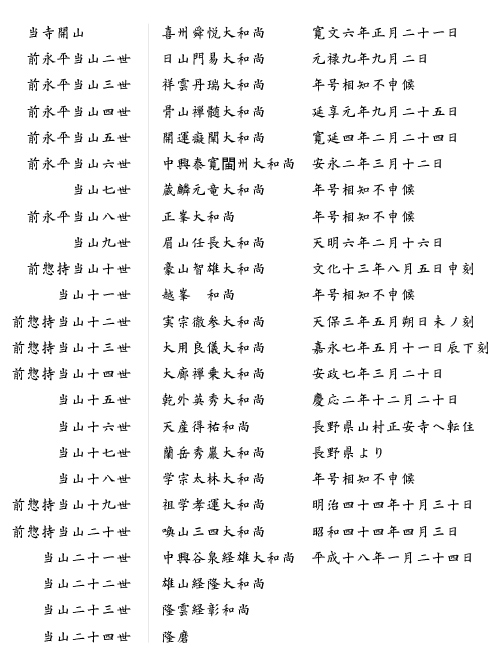 当寺開山 喜州舜悦大和尚 寛文六年正月二十一日
前永平当山二世 日山門易大和尚 元禄九年九月二日
前永平当山三世 祥雲丹瑞大和尚 年号相知不申候
前永平当山四世 骨山禅髄大和尚 延享元年九月二十五日
前永平当山五世 開運癡聞大和尚 寛延四年二月二十四日
前永平当山六世 中興泰寛誾州大和尚 安永二年三月十二日
当山七世 蔵麟元竜大和尚 年号相知不申候
前永平当山八世 正峯大和尚 年号相知不申候
当山九世 眉山任長大和尚 天明六年二月十六日
前惣持当山十世 豪山智雄大和尚 文化十三年八月五日申刻
当山十一世 越峯 和尚 年号相知不申候
前惣持当山十二世 実宗徹参大和尚 天保三年五月朔日未ノ刻
前惣持当山十三世 大用良儀大和尚 嘉永七年五月十一日辰下刻
前惣持当山十四世 大廊禅乗大和尚 安政七年三月二十日
当山十五世 乾外英秀大和尚 慶応二年十二月二十日
当山十六世 天産得祐和尚 長野県山村正安寺へ転住
当山十七世 蘭岳秀巖大和尚 長野県より
当山十八世 学宗太林大和尚 年号相知不申候
前惣持当山十九世 祖学孝運大和尚 明治四十四年十月三十日
前惣持当山二十世 喚山三四大和尚 昭和四十四年四月三日
当山二十一世 中興谷泉経雄大和尚 平成十八年一月二十四日
当山二十二世 雄山経隆大和尚
当山二十三世 隆雲経彰和尚
当山二十四世 隆磨